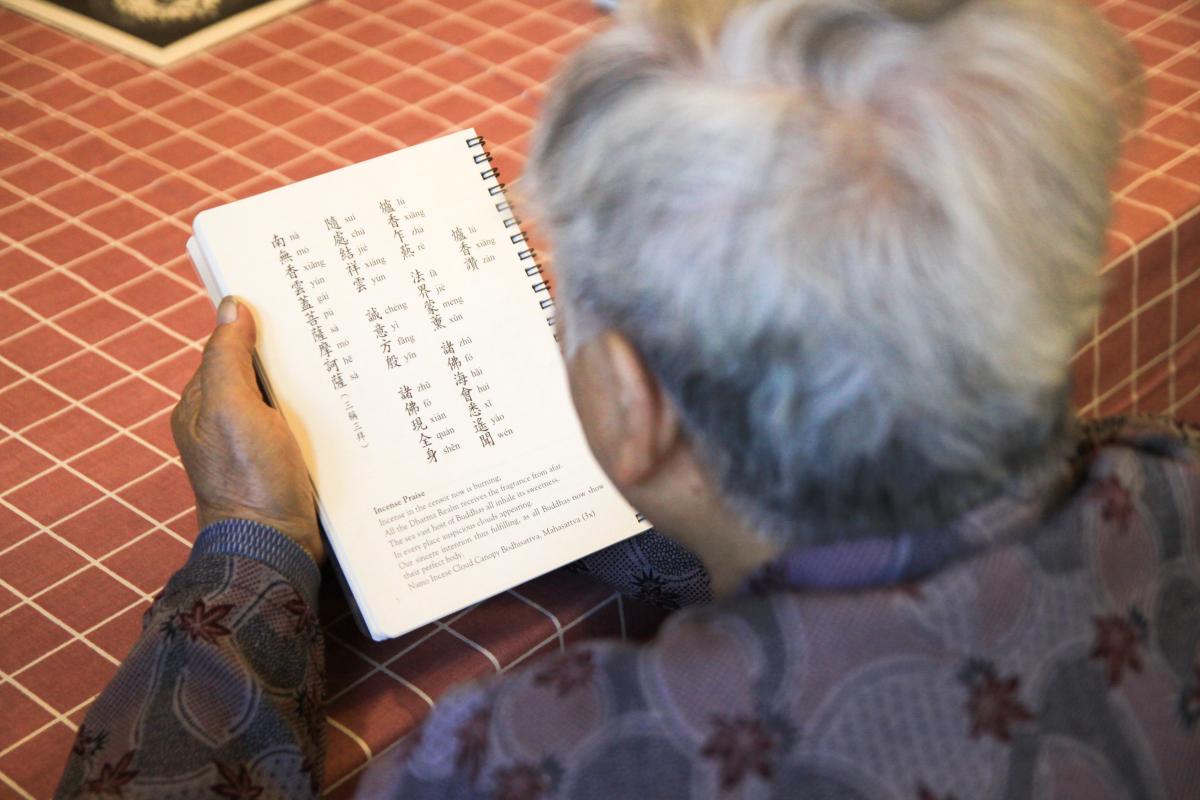 爐香讚
lú xiāng zàn
爐香乍爇 法界蒙薰 諸佛海會悉遙聞
lú xiāng zhà rè fǎ jiè méng xūn zhū fó hǎi huì xī yáo wén
隨處結祥雲 誠意方殷 諸佛現全身
suí chù jié xiáng yún chéng yì fāng yīn zhū fó xiàn quán shēn
南無香雲蓋菩薩摩訶薩(三稱三拜)
ná mó xiāng yún gài pú sà mó hē sà
Incense Praise
Incense in the censor now is burning;
All the Dharma Realm receives the fragrance from afar.
The sea vast host of Buddhas all inhale its sweetness.
In every place auspicious clouds appearing.
Our sincere intention thus fulfilling, as all Buddhas now show
their perfect body,
Namo Incese Cloud Canopy Bodhusattva, Mahasattva (3x)